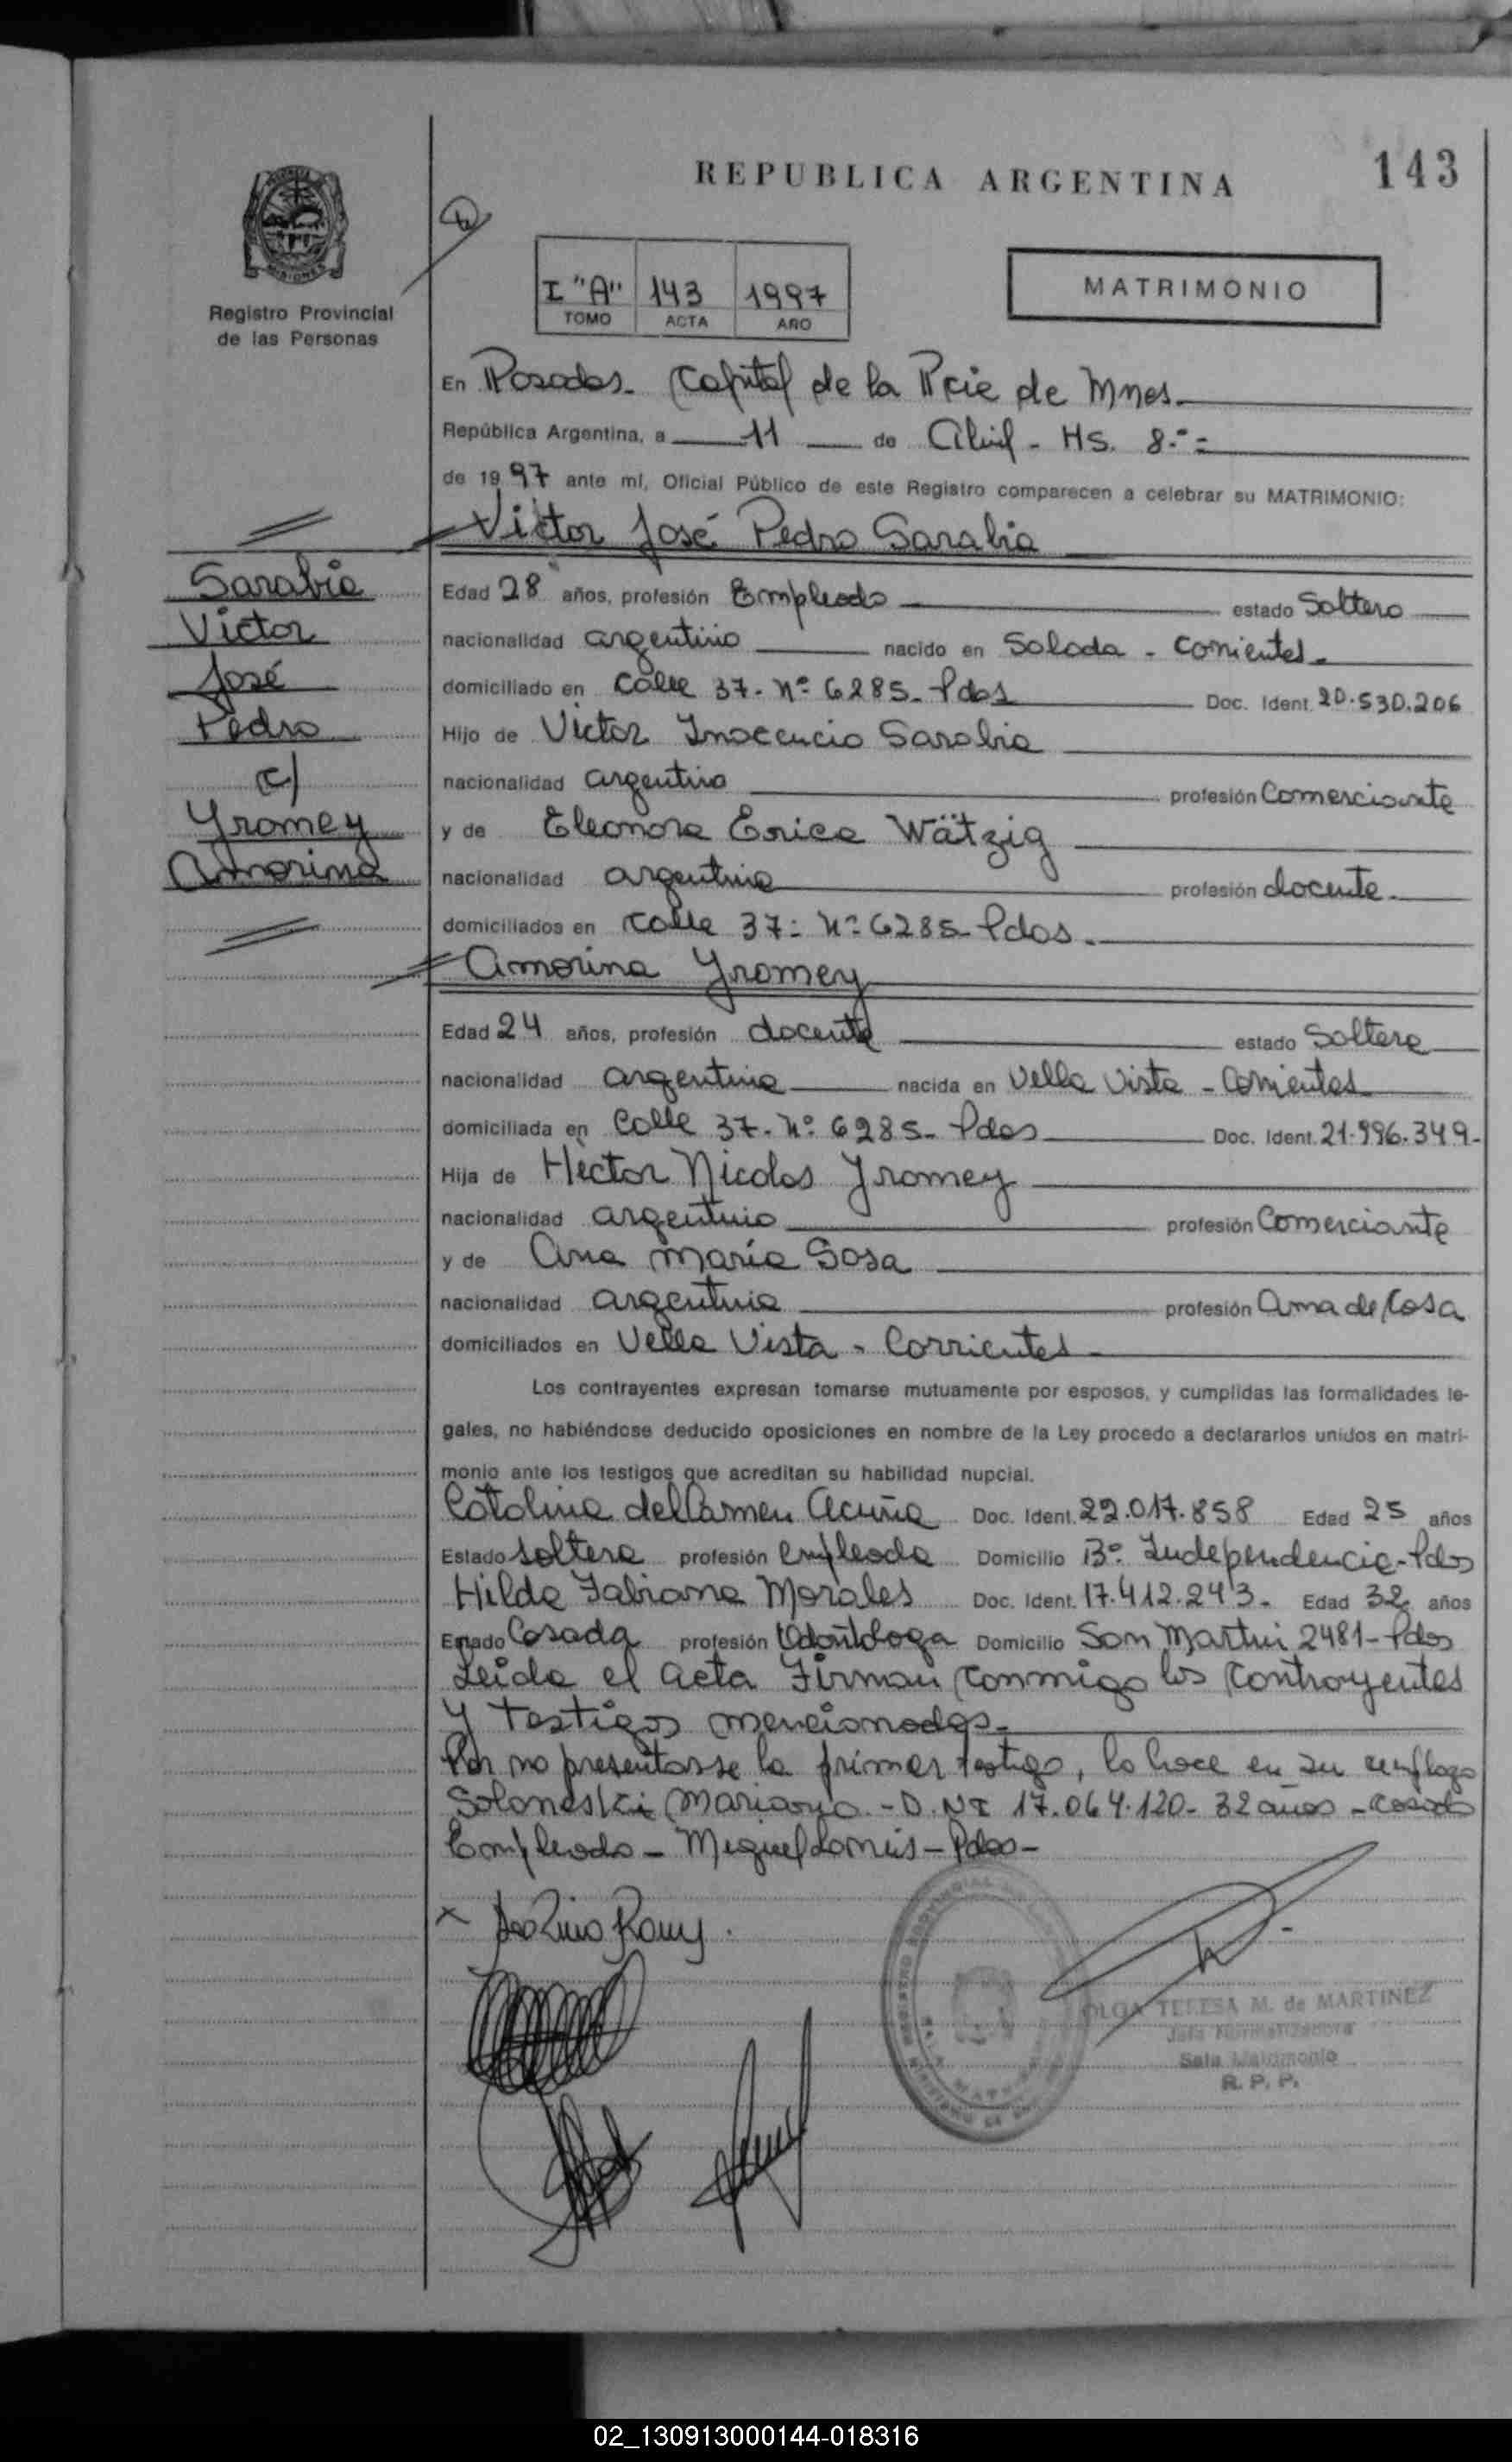 143
REPUBLICA ARGENTINA
MISIONES
Registro Provincial
de las Personas
I "A" 143 1997
TOMO ACTA AÑO
MATRIMONIO
En Posadas. Capital de la Pcie de Mnes.
República Argentina, a 11 de Abril - HS. 8.-
de 1997 ante mí, Oficial Público de este Registro comparecen a celebrar su MATRIMONIO:
Victor José Pedro Sarabia
Sarabia
Victor
José
Pedro
c/
Yromey
Amorina
Edad 28 años, profesión Empleado estado Soltero
nacionalidad argentino nacido en Salada - Corrientes.
domiciliado en Calle 37. Nº 6285. Pdas Doc. Ident. 20.530.206
Hijo de Victor Inocencio Sarabia
nacionalidad argentino profesión Comerciante
y de Eleonora Erica Wätzig
nacionalidad argentina profesión docente.
domiciliados en Calle 37: Nº 6285- Pdas.
Amorina Yromey
Edad 24 años, profesión docente estado Soltera
nacionalidad argentina nacida en Vella Vista - Corrientes
domiciliada en Calle 37. Nº 6285- Pdas Doc. Ident. 21.996.349-
Hija de Hèctor Nicolas Yromey
nacionalidad argentino profesión Comerciante
y de Ana María Sosa
nacionalidad argentina profesión Ama de Casa
domiciliados en Vella Vista - Corrientes
Los contrayentes expresan tomarse mutuamente por esposos, y cumplidas las formalidades le-
gales, no habiéndose deducido oposiciones en nombre de la Ley procedo a declararlos unidos en matri-
monio ante los testigos que acreditan su habilidad nupcial.
Catalina del Carmen Acuña Doc. Ident. 22.017.858 Edad 25 años
Estado Soltera profesión Empleada Domicilio Bº. Independencia - Pdas
Hilda Fabiana Morales Doc. Ident. 17.412.243. Edad 32 años
Estado Casada profesión Odontóloga Domicilio San Martin 2481- Pdas
Leida el acta Firman conmigo los contrayentes
y testigos mencionados.
Por no presentarse la primer testigo, lo hace en su remplazo
Soloneski Mariano. - D.N.I 17.064.120- 32 años - casado
Empleado - Miguel Lanús - Pdas -
OLGA TERESA M. de MARTINEZ
Jefa Normalizadora
Sala Matrimonio
R. P. P.
02_130913000144-018316